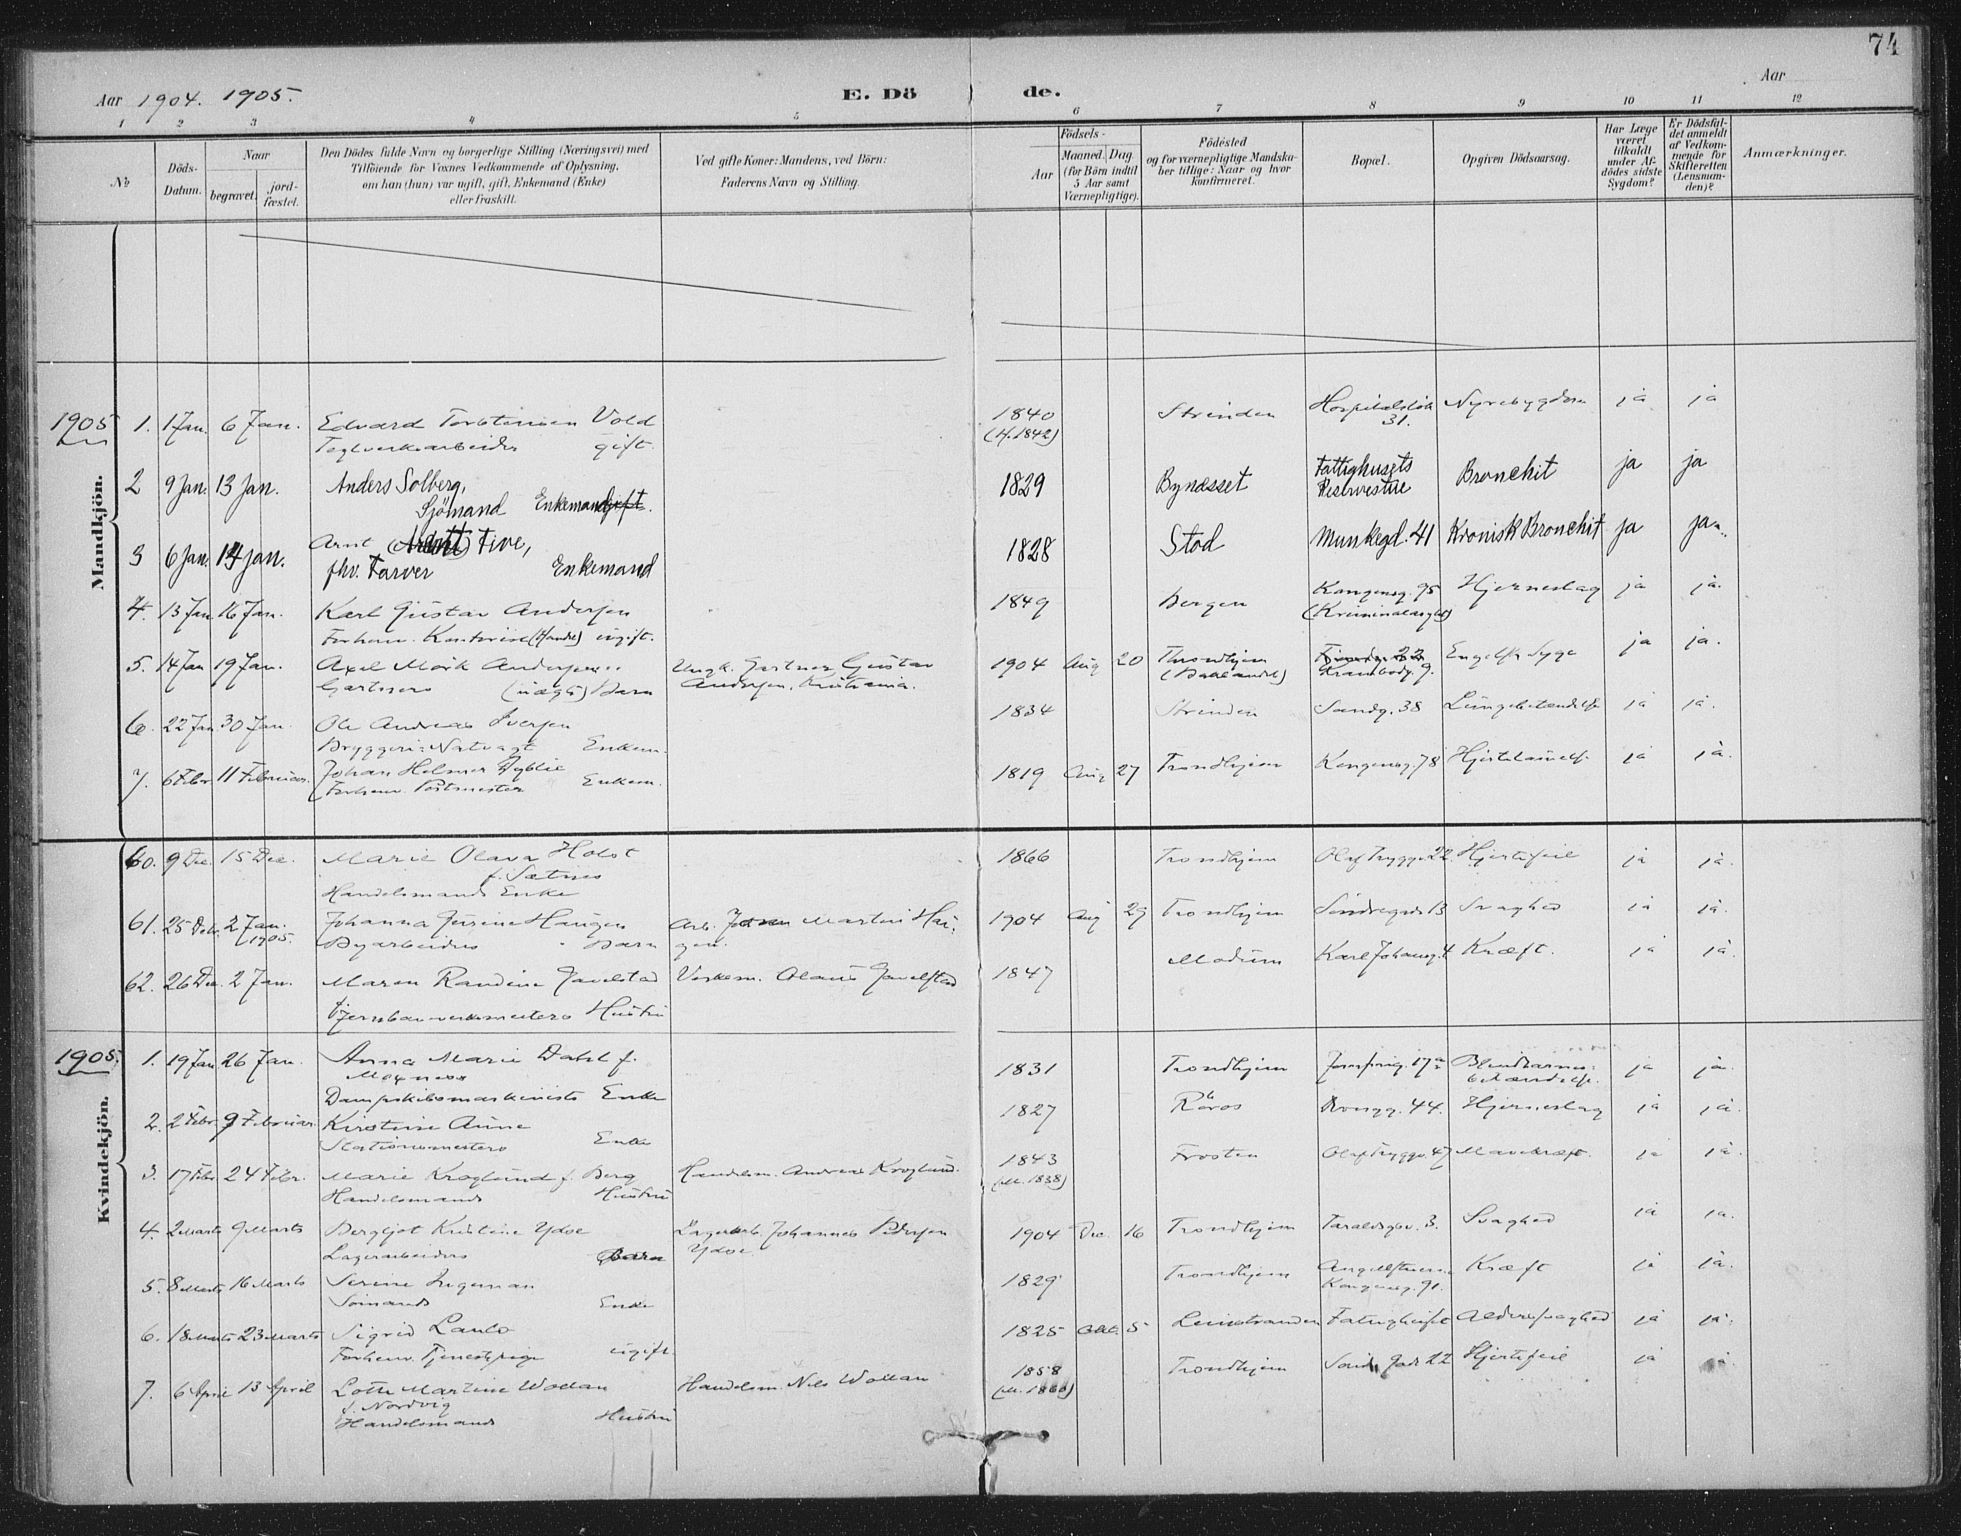 74
Aar 1904. 1905. E. Dö de. Aar
1 2 3 4 5 6 7 8 9 10 11 12
№
Döds-Datum.
Naar
begravet.
jord-fæstet.
Den Dödes fulde Navn og borgerlige Stilling (Næringsvei) med
Tilföiende for Voxnes Vedkommende af Oplysning,
om han (hun) var ugift, gift, Enkemand (Enke)
eller fraskilt.
Ved gifte Koner: Mandens, ved Börn:
Faderens Navn og Stilling.
Födsels-
Aar
Maaned. Dag.
(for Börn indtil
5 Aar samt
Værnepligtige).
Födested
og for værnepligtige Mandska-
ber tillige: Naar og hvor
konfirmeret.
Bopæl.
Opgiven Dödsaarsag.
Har Læge
været
tilkaldt
under Af-
dödes sidste
Sygdom?
Er Dödsfal-
det anmeldt
af Vedkom-
mende for
Skifteretten
(Lensman-
den)?
Anmærkninger.
Mandkjön.
1905 1. 1 Jan. 6 Jan. Edvard Torstensen Vold 1840 Strinden ja ja
Teglverksarbeider gift. (H. 1842) 31.
2 9 Jan. 13 Jan. Anders Solberg, 1829 Bynesset Fattighusets Bronchit ja ja
Sjömand Enkemand gift.
3 6 Jan. 14 Jan. Arnt Five, 1828 Stod Munkegd. 41 Kronisk Bronchit ja ja
fhv. Farver Enkemand
4. 13 Jan. 16 Jan. Karl Gustav Andersen 1849 Bergen Kongensg. 95 Hjerneslag ja ja.
Forhenv. Kontorist (Handel) ugift. (Kriminalasylet)
5. 14 Jan 19 Jan. Axel Mörk Andersen Ungk. Gartner Gustav 1904 Aug 20 Throndhjem Engelsk Syge ja ja.
Gartners (uægte) Barn Andersen, Kristiania. Krambodg. 9.
6. 22 Jan 30 Jan. Ole Andreas Iversen 1834 Strinden Sandg. 38 Lungebetændelse ja ja.
Bryggeri-Natvagt Enkem.
7. 6 Febr 11 Februar. Johan Holmer Dyblie 1819 Aug 27 Trondhjem Kongensg. 78 ja ja.
Forhenv. Postmester Enkem.
60. 9 Dec. 15 Dec. Marie Olava Holst 1866 Trondhjem Olaf Trygg. 22 Hjertefeil ja ja.
f. Sætnes
Handelsmands Enke
61. 25 Deb. 2 Jan. Johanna Haugen Arb. Johan Martin Hau- 1904 Aug 29 Trondhjem Söndregade 13 Svaghed ja ja.
1905. Byarbeiders Barn gen.
62. 26 Dec. 2 Jan. Maren Randine Gavelstad Verksm. Olaus Gavelstad 1847 Modum Karl Johansg. 4 Kræft. ja ja.
Hustru
Kvindekjön.
1905. 1. 19 Jan 26 Jan. Anna Marie Dahl f. 1831 Trondhjem ja ja.
Moxness
Dampskibsmaskinists Enke
2. 2 Febr. 9 Februar. Kirstine Aune 1827 Röros 44. Hjerneslag ja ja.
Stationsmesters Enke
3. 17 Febr 24 Febr. Marie Kroglund f. Berg Handelsm. Andreas Kroglund. 1843 Frosten Olaf Tryggv. 47 Mavekræft. ja ja.
Handelsmands Hustru (M. 1838)
4. 2 Marts 9 Marts Bergljot Kristine Ydse Lagerarb. Johannes Pedersen 1904 Dec. 16 Trondhjem Taraldsgv. 3. Svaghed ja ja.
Lagerarbeiders Barn Ydse.
5. 8 Marts 16 Marts Serine Ingeman 1829 Trondhjem Kræft ja ja.
Sömands Enke Kongensg. 91.
6. 18 Marts 23 Marts Sigrid Lanlo 1825 Okt. 5 Leinstranden Fattighuset Alderssvaghed ja ja.
Forhenv. Tjenestepige ugift.
7. 6 April 13 April Lotte Martine Wollan Handelsm. Nils Wollan 1858 Trondhjem Sönd. Gade 22 Hjertefeil ja ja.
f. Nordvig (M. 1860)
Handelsmands Hustru